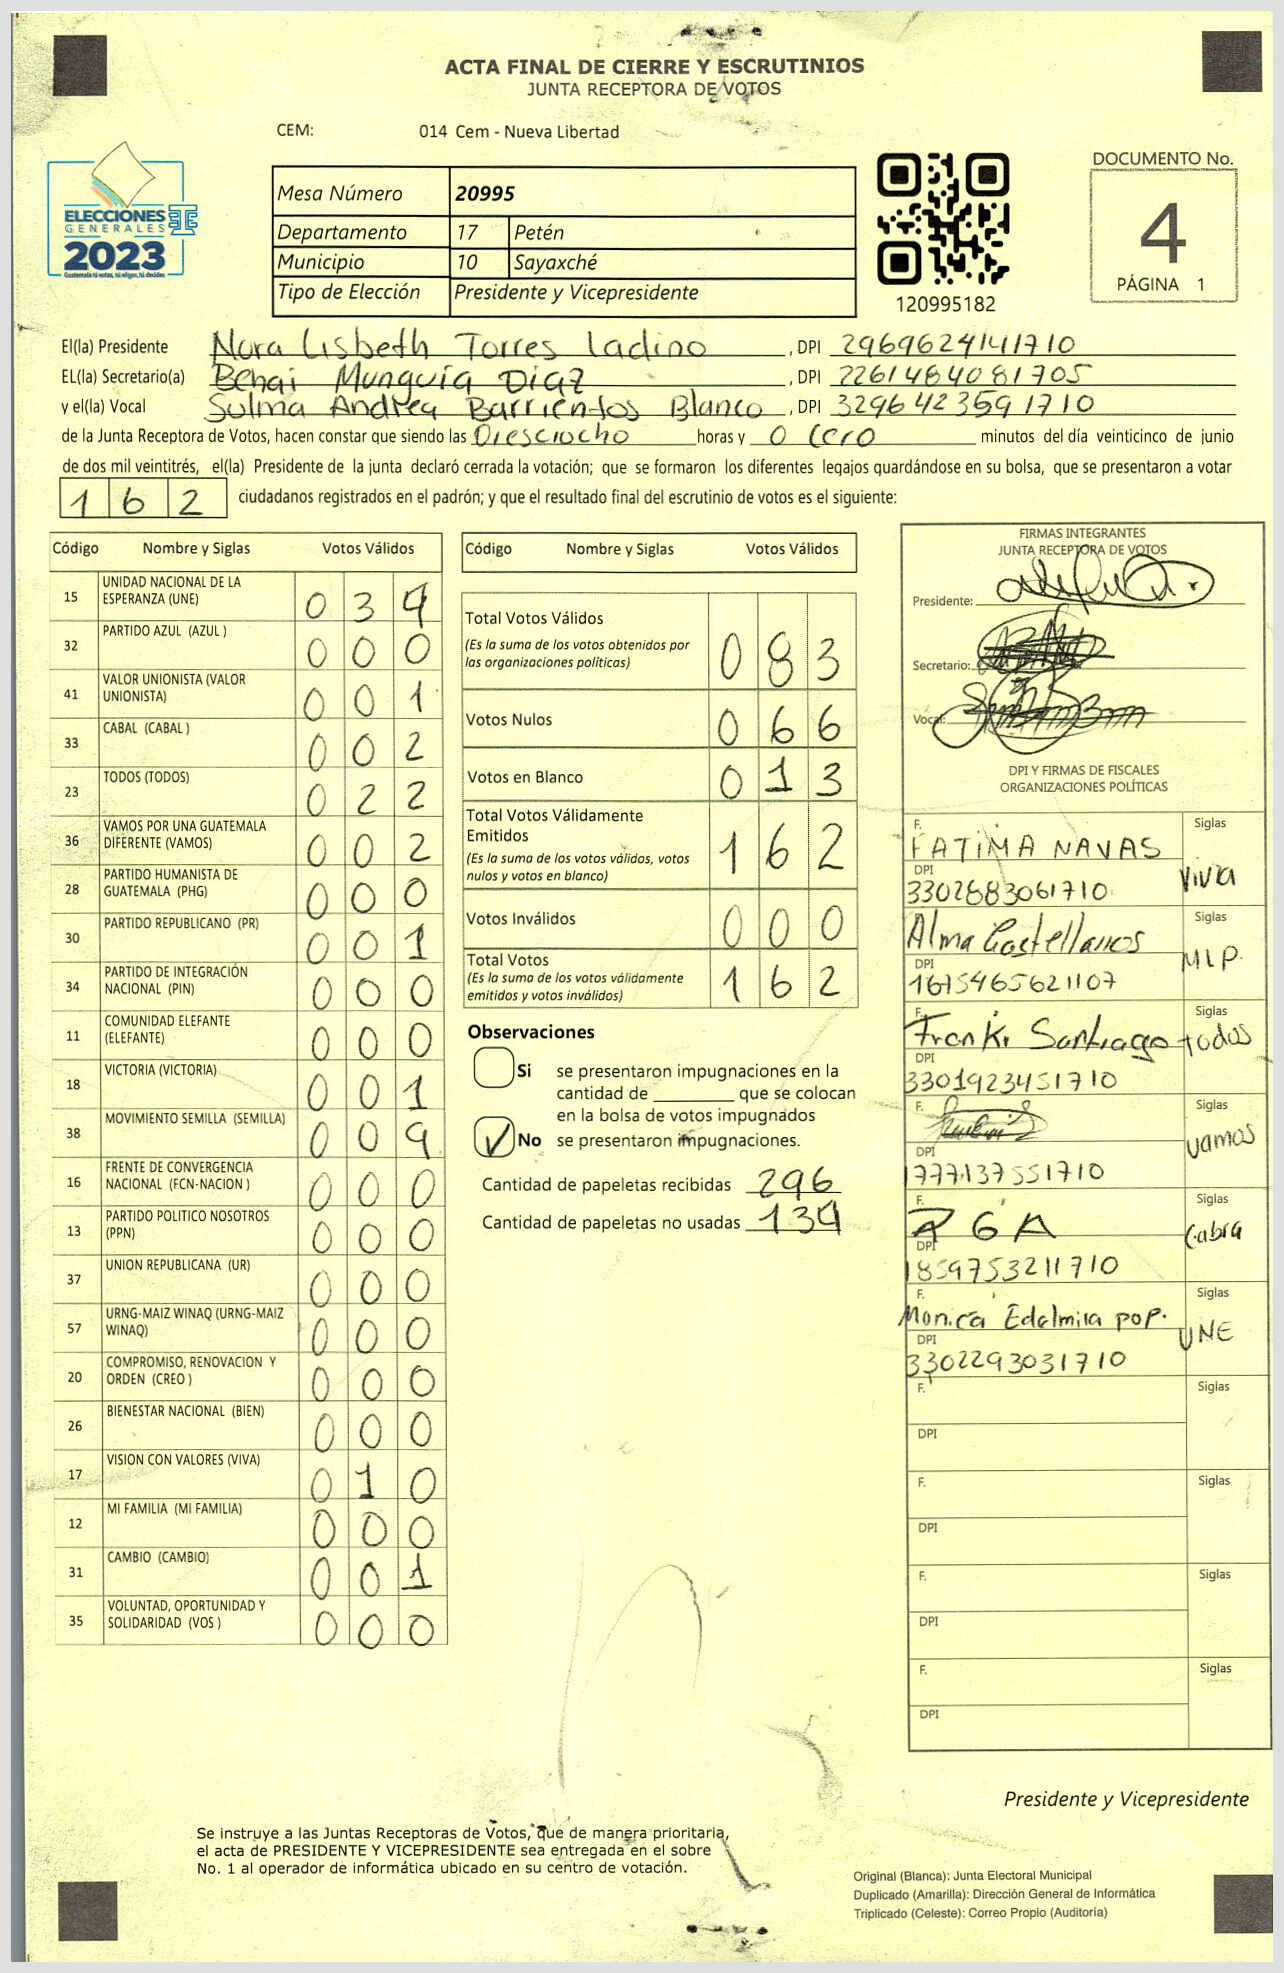 ACTA FINAL DE CIERRE Y ESCRUTINIOS
JUNTA RECEPTORA DE VOTOS
CEM: 014 Cem - Nueva Libertad
ELECCIONES
GENERALES
2023
Guatemala tú votas, tú eliges, tú decides
Mesa Número 20995
Departamento 17 Petén
Municipio 10 Sayaxché
Tipo de Elección Presidente y Vicepresidente
120995182
DOCUMENTO No.
4
PÁGINA 1
El(la) Presidente Nora Lisbeth Torres Ladino , DPI 2969624141710
EL(la) Secretario(a) Benai Munguia Diaz , DPI 2261484081705
y el(la) Vocal Sulma Andrea Barrientos Blanco , DPI 3296423591710
de la Junta Receptora de Votos, hacen constar que siendo las Diesciocho horas y 0 Cero minutos del día veinticinco de junio
de dos mil veintitrés, el(la) Presidente de la junta declaró cerrada la votación; que se formaron los diferentes legajos guardándose en su bolsa, que se presentaron a votar
162 ciudadanos registrados en el padrón; y que el resultado final del escrutinio de votos es el siguiente:
Código Nombre y Siglas Votos Válidos
15 UNIDAD NACIONAL DE LA ESPERANZA (UNE) 0 3 4
32 PARTIDO AZUL (AZUL ) 0 0 0
41 VALOR UNIONISTA (VALOR UNIONISTA) 0 0 1
33 CABAL (CABAL ) 0 0 2
23 TODOS (TODOS) 0 2 2
36 VAMOS POR UNA GUATEMALA DIFERENTE (VAMOS) 0 0 2
28 PARTIDO HUMANISTA DE GUATEMALA (PHG) 0 0 0
30 PARTIDO REPUBLICANO (PR) 0 0 1
34 PARTIDO DE INTEGRACIÓN NACIONAL (PIN) 0 0 0
11 COMUNIDAD ELEFANTE (ELEFANTE) 0 0 0
18 VICTORIA (VICTORIA) 0 0 1
38 MOVIMIENTO SEMILLA (SEMILLA) 0 0 9
16 FRENTE DE CONVERGENCIA NACIONAL (FCN-NACION ) 0 0 0
13 PARTIDO POLITICO NOSOTROS (PPN) 0 0 0
37 UNION REPUBLICANA (UR) 0 0 0
57 URNG-MAIZ WINAQ (URNG-MAIZ WINAQ) 0 0 0
20 COMPROMISO, RENOVACION Y ORDEN (CREO ) 0 0 0
26 BIENESTAR NACIONAL (BIEN) 0 0 0
17 VISION CON VALORES (VIVA) 0 1 0
12 MI FAMILIA (MI FAMILIA) 0 0 0
31 CAMBIO (CAMBIO) 0 0 1
35 VOLUNTAD, OPORTUNIDAD Y SOLIDARIDAD (VOS ) 0 0 0
Código Nombre y Siglas Votos Válidos
Total Votos Válidos 0 8 3
(Es la suma de los votos obtenidos por
las organizaciones políticas)
Votos Nulos 0 6 6
Votos en Blanco 0 1 3
Total Votos Válidamente
Emitidos 1 6 2
(Es la suma de los votos válidos, votos
nulos y votos en blanco)
Votos Inválidos 0 0 0
Total Votos 1 6 2
(Es la suma de los votos válidamente
emitidos y votos inválidos)
Observaciones
Si se presentaron impugnaciones en la
cantidad de que se colocan
en la bolsa de votos impugnados
No se presentaron impugnaciones.
Cantidad de papeletas recibidas 296
Cantidad de papeletas no usadas 134
FIRMAS INTEGRANTES
JUNTA RECEPTORA DE VOTOS
Presidente:
Secretario:
Vocal:
DPI Y FIRMAS DE FISCALES
ORGANIZACIONES POLÍTICAS
F. Siglas
FATIMA NAVAS Viva
DPI
3302883061710
Siglas
Alma Castellanos MLP.
DPI
1675465621107
F. Siglas
Franki Santiago todos
DPI
3301923451710
F. Siglas
vamos
DPI
1777137551710
F. Siglas
RGA Cabra
DPI
1859753211710
F. Siglas
Monica Edelmira pop. UNE
DPI
3302293031710
F. Siglas
DPI
F. Siglas
DPI
F. Siglas
DPI
F. Siglas
DPI
Presidente y Vicepresidente
Se instruye a las Juntas Receptoras de Votos, que de manera prioritaria,
el acta de PRESIDENTE Y VICEPRESIDENTE sea entregada en el sobre
No. 1 al operador de informática ubicado en su centro de votación.
Original (Blanca): Junta Electoral Municipal
Duplicado (Amarilla): Dirección General de Informática
Triplicado (Celeste): Correo Propio (Auditoría)